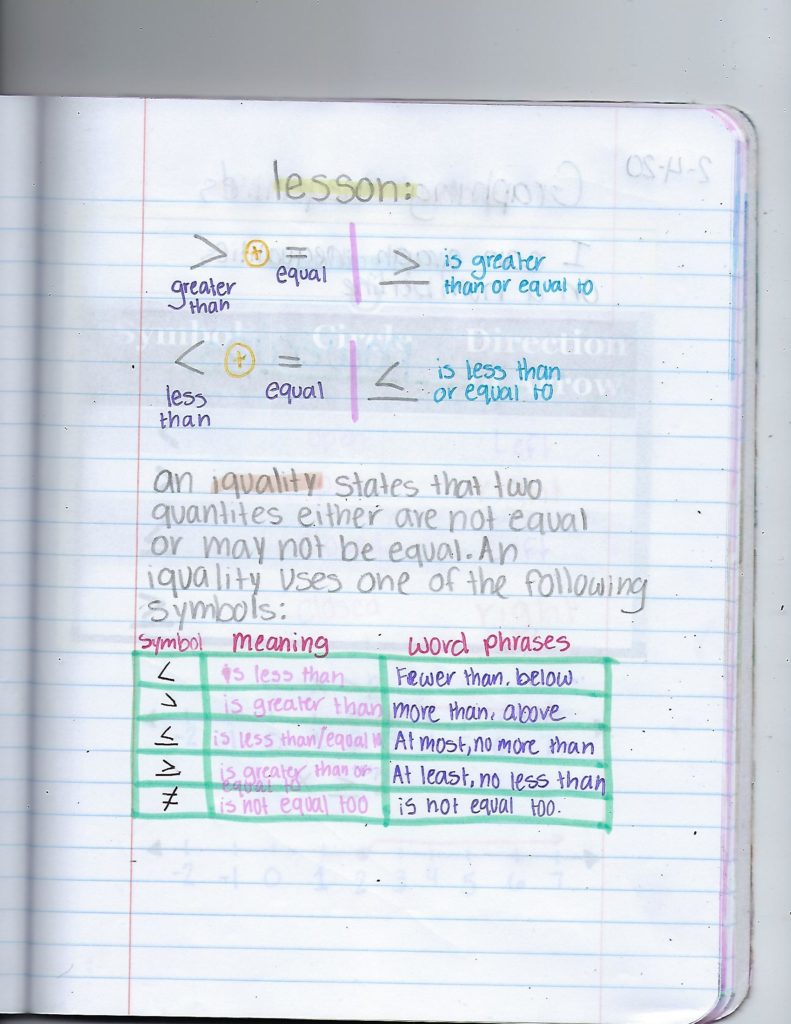 lesson:
> + = | ≥ is greater
greater than equal than or equal to
< + = | ≤ is less than
less than equal or equal to
an iquality states that two
quantites either are not equal
or may not be equal. An
iquality uses one of the following
symbols:
symbol meaning word phrases
< is less than Fewer than, below
> is greater than more than, above
≤ is less than/equal to At most, no more than
≥ is greater than or equal to At least, no less than
≠ is not equal too is not equal too.